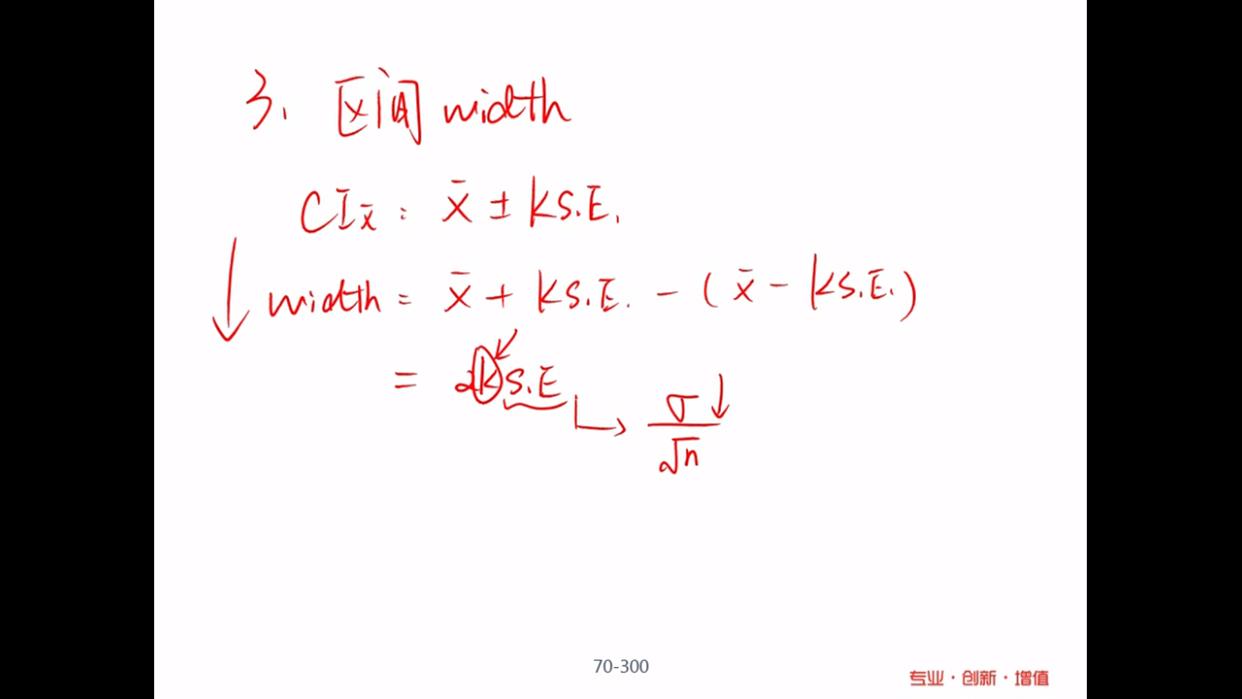 3. 区间 width
CI x̄ : x̄ ± k S.E.
width = x̄ + k S.E. - ( x̄ - k S.E. )
= 2k S.E
σ
√n
70-300
专业·创新·增值